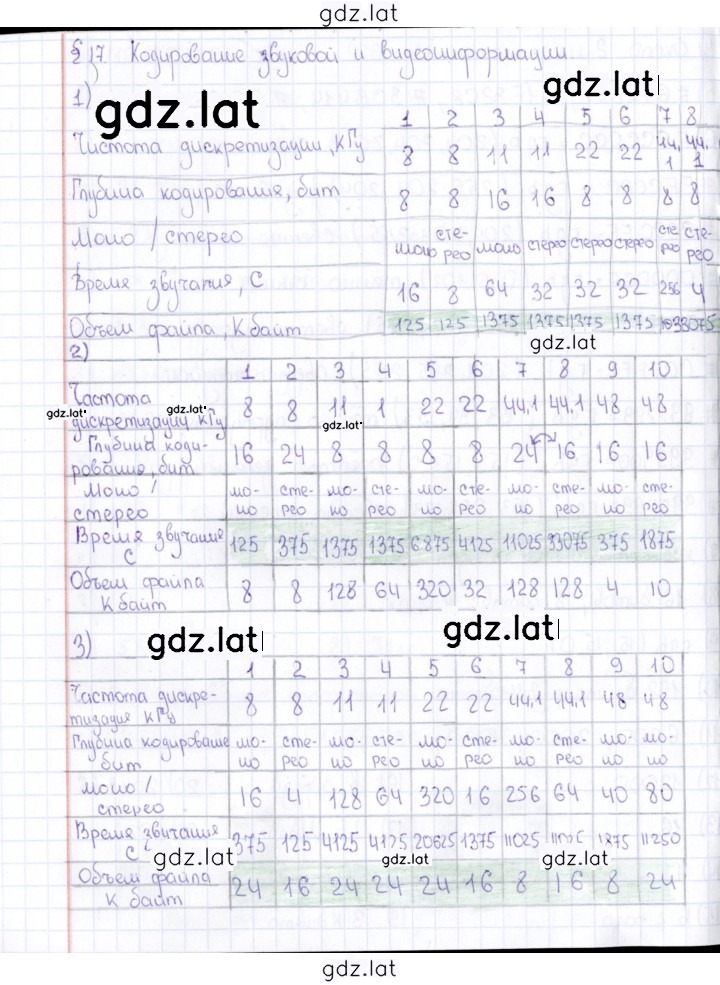 gdz.lat
§ 17 Кодирование звуковой и видеоинформации
1)
gdz.lat
gdz.lat
1 2 3 4 5 6 7 8
Чистота дискретизации, кГц 8 8 11 11 22 22 44,1 44,1
Глубина кодирования, бит 8 8 16 16 8 8 8 8
Моно / стерео моно стерео моно стерео стерео стерео стерео стерео
Время звучания, С 16 8 64 32 32 32 256 4
Объем файла, Кбайт 125 125 1375 1375 1375 1375 33075
gdz.lat
2)
1 2 3 4 5 6 7 8 9 10
Частота
дискретизации кГц 8 8 11 1 22 22 44,1 44,1 48 48
gdz.lat gdz.lat gdz.lat
Глубина коди-
рования, бит 16 24 8 8 8 8 24 16 16 16
Моно / мо- сте- мо- сте- мо- сте- мо- сте- мо- мо-
стерео но рео но рео но рео но рео но но
Время звучания
С 125 375 1375 1375 6875 4125 11025 33075 375 1875
Объем файла
Кбайт 8 8 128 64 320 32 128 128 4 10
gdz.lat
gdz.lat
3)
1 2 3 4 5 6 7 8 9 10
Частота дискре-
тизация кГц 8 8 11 11 22 22 44,1 44,1 48 48
Глубина кодирование мо- сте- мо- сте- мо- сте- мо- сте- мо- мо-
бит но рео но рео но рео но рео но но
моно /
стерео 16 4 128 64 320 16 256 64 40 80
Время звучания
С 375 125 4125 4125 20625 1375 11025 11025 1875 11250
gdz.lat gdz.lat gdz.lat
Объем файла
К байт 24 16 24 24 24 16 8 16 8 24
gdz.lat